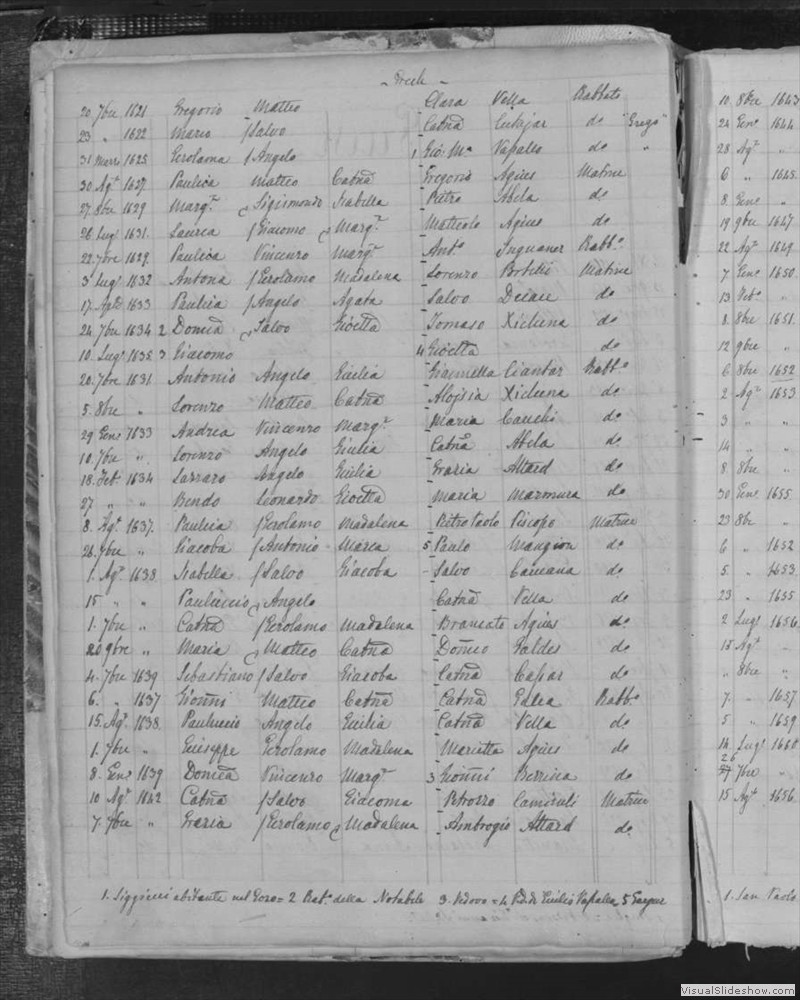 20 7bre 1621 Gregorio Matteo Clara Vella Rabbato
23 " 1622 Mario Salvo Catna Cutajar do "Gregs"
31 Marzo 1625 Gerolama Angelo 1 Gio: Ma Vapalla do "
30 Agt 1627 Paulica Matteo Catna Gregorio Agius Matrice
27 8bre 1629 Margta Sigismondo Isabella Pietro Abela do
26 Lugl 1631 Laurea Giacomo Margta Matteolo Agius do
22 7bre 1629 Paulica Vincenzo Margta Anto Inguanez Rabbo
3 Lugl 1632 Antona Gerolamo Madalena Lorenzo Portelli Matrice
17 1633 Paulica Angelo Agata Salvo do
24 7bre 1634 2 Domca Salvo Gioetta Tomaso Xicluna do
10 Lugl 1635 3 Giacomo 4 Gioetta do
20 7bre 1631 Antonio Angelo Giulia Giacmella Ciantar Rabbo
5 8bre " Lorenzo Matteo Catna Aloysia Xicluna do
29 Gen 1633 Andrea Vincenzo Margta Maria Cauchi do
10 7bre " Lorenzo Angelo Giulia Catna Abela do
18 Feb 1634 Lazzaro Angelo Giulia Grazia Attard do
27 " " Bendo Leonardo Gioetta Maria Marmura do
8 Agt 1637 Paulica Gerolamo Madalena Pietro Paolo Piscopo Matrice
26 7bre " Giacoba Antonio Marca 5 Paulo Mangion do
1 Agt 1638 Isabella Salvo Giacoba Salvo Camana do
15 " " Pauluccio Angelo Catna Vella do
1 7bre " Catna Gerolamo Madalena Brancato Agius do
20 9bre " Maria Matteo Catna Domco Galdes do
4 7bre 1639 Sebastiano Salvo Giacoba Catna Caspar do
6 " 1637 Gionni Matteo Catna Catna Rabbo
15 Agt 1638 Pauluccio Angelo Giulia Catna Vella do
1 7bre " Giuseppe Gerolamo Madalena Marietta Agius do
8 Gen 1639 Domca Vincenzo Margta 3 Gionni do
10 Agt 1642 Catna Salvo Giacoma Camiculi Matrice
7 7bre " Grazia Gerolamo Madalena Ambrogio Attard do
1. abitante nel Gozo = 2 Rabto della Notabile 3. Vedovo = 4 Vda di Giulio Vapalla 5 Gaspar
10 8bre 1643
24 Gen 1644
28 Agt "
6 " 1645
8 Gen "
19 9bre 1647
22 Agt 1649
7 Gen 1650
13 Feb "
8 8bre 1651
12 9bre "
6 8bre 1652
2 Agt 1653
3 " "
14 " "
8 8bre "
30 Gen 1655
23 8bre "
6 " 1652
5 " 1653
23 " 1655
2 Lugl 1656
15 Agt "
" 8bre "
7 " 1657
5 " 1659
14 Lugl 1660
26
27 7bre "
15 Agt 1656
1. San Paolo
VisualSlideshow.com